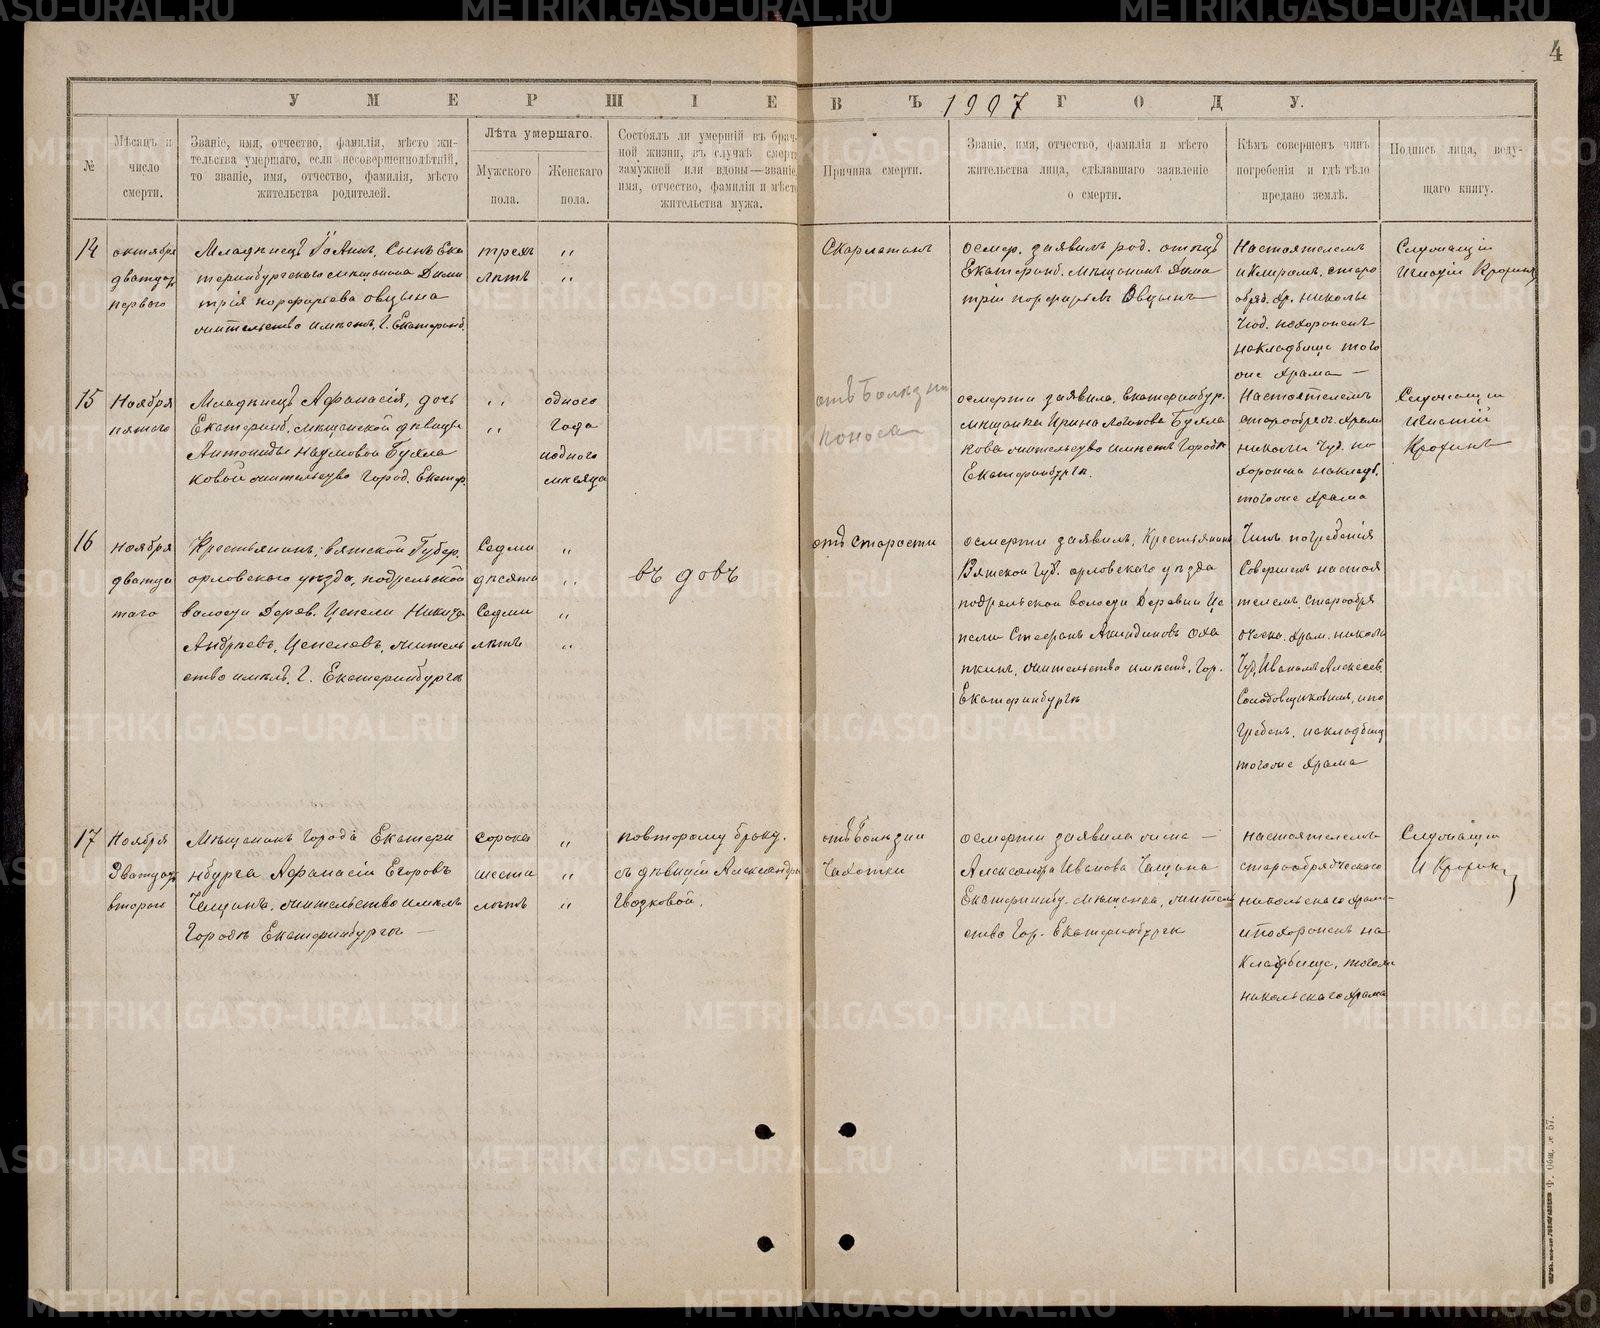 4
УМЕРШІЕ ВЪ 1907 ГОДУ.
№
Мѣсяцъ и
число
смерти.
Званіе, имя, отчество, фамилія, мѣсто жи-
тельства умершаго, если несовершеннолѣтній,
то званіе, имя, отчество, фамилія, мѣсто
жительства родителей.
Лѣта умершаго.
Мужского
пола.
Женскаго
пола.
Состоялъ ли умершій въ брач-
ной жизни, въ случаѣ смерт
замужней или вдовы—званіе,
имя, отчество, фамилія и мѣсто
жительства мужа.
Причина смерти.
Званіе, имя, отчество, фамилія и мѣсто
жительства лица, сдѣлавшаго заявленіе
о смерти.
Кѣмъ совершенъ чинъ
погребенія и гдѣ тѣло
предано землѣ.
Подпись лица, веду-
щаго книгу.
14
октября
дватцат
перваго
Младенецъ Іоаннъ, Сынъ Ека
теринбургскаго мещанина Дими
трія порфирьева овцына
жительство имеетъ, Г. Екатеринб.
трехъ
летъ
"
"
Скарлатинъ
осмер. заявилъ род. отецъ
Екатеринб. мещанинъ Дими
трій порфирьевъ Овцынъ
Настоятелемъ
и Клиромъ, старо
обряд. хр. николы
Чюд. похороненъ
накладбище того
же храма —
Служащій
Игнатій Крохинъ
15
Ноября
пятого
Младенецъ Афанасія, дочь
Екатеринб. мещанской девицы
Антониды наумовой Бухла
ковой жительство город. Екатер.
"
"
одного
года
иодного
месяца
отъ Болезни
поноса
осмерти заявила, екатеринбур.
мещанка Ирина Логинова Бухла
кова жительство имеетъ Городе
Екатеринбурге.
Настоятелемъ
старообряд. храма
николы Чуд. по
хоронена накладб.
тогоже храма
Служащій
Игнатій
Крохинъ
16
ноября
дватца
таго
Крестьянинъ, вятской Губер.
орловского уезда, подрельской
волости Дерев. Цепели Никита
Андреевъ, Цепелевъ, житель
ство имелъ, Г. Екатеринбурге
Седми
десяти
Седми
летъ
"
"
"
"
въ довъ
отъ старости
осмерти заявилъ, Крестьянинъ
Вятской Губ. орловского уезда
подрельской волости Деревни Це
пели Стефанъ Акиндиновъ оха
пкинъ, жительство имеетъ, Гор.
Екатеринбурге
Чинъ погребенія
Совершенъ настоя
телемъ, старообря
ческа. храм. николы
Чуд, Иваномъ Алексеев.
Солодовщиковымъ, ипо
гребенъ. накладбищ
тогоже храма
17
Ноября
Дватцат
второго
Мещанинъ Города Екатери
нбурга Афанасій Егоровъ
Чащинъ, жительство имелъ
Городе Екатеринбурге —
сорока
шести
летъ
"
"
"
повторому браку.
съ девицей Александрой
Гвозковой.
отъ Болезни
Чахотки
осмерти заявила жина —
Александра Иванова Чащина
Екатеринбу. мещанка, жител
ство Гор. Екатеринбурге
настоятелемъ
старообрядческого
никольскаго храма
ипохороненъ на
Кладбище, тогоже
никольскаго храма
Служащій
И Крохинъ
METRIKI.GASO-URAL.RU